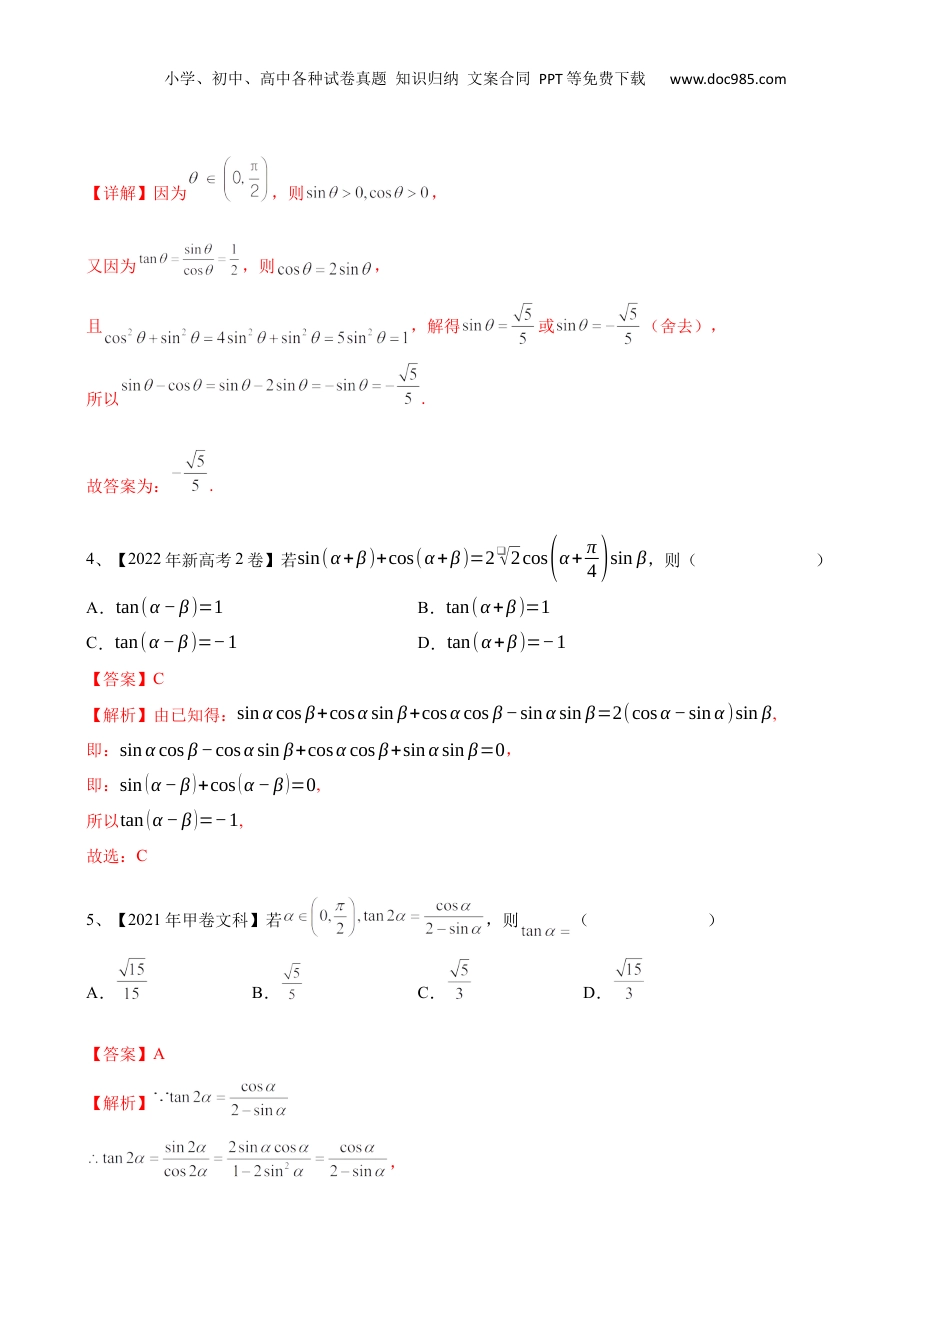 小学、初中、高中各种试卷真题 知识归纳 文案合同 PPT等免费下载 www.doc985.com
【详解】因为θ∈(0,π/2)，则sinθ>0,cosθ>0，
又因为tanθ=sinθ/cosθ=1/2，则cosθ=2sinθ，
且cos²θ+sin²θ=4sin²θ+sin²θ=5sin²θ=1，解得sinθ=√5/5或sinθ=-√5/5（舍去），
所以sinθ-cosθ=sinθ-2sinθ=-sinθ=-√5/5.
故答案为：-√5/5.
4、【2022年新高考2卷】若sin(α+β)+cos(α+β)=2√2cos(α+π/4)sinβ，则（ ）
A．tan(α−β)=1 B．tan(α+β)=1
C．tan(α−β)=−1 D．tan(α+β)=−1
【答案】C
【解析】由已知得：sinαcosβ+cosαsinβ+cosαcosβ−sinαsinβ=2(cosα−sinα)sinβ,
即：sinαcosβ−cosαsinβ+cosαcosβ+sinαsinβ=0，
即：sin(α−β)+cos(α−β)=0,
所以tan(α−β)=−1,
故选：C
5、【2021年甲卷文科】若α∈(0,π/2),tan2α=cosα/(2-sinα)，则tanα=（ ）
A．√15/15 B．√5/5 C．√5/3 D．√15/3
【答案】A
【解析】∵tan2α=cosα/(2-sinα)
∴tan2α=sin2α/cos2α=2sinαcosα/(1-2sin²α)=cosα/(2-sinα)，